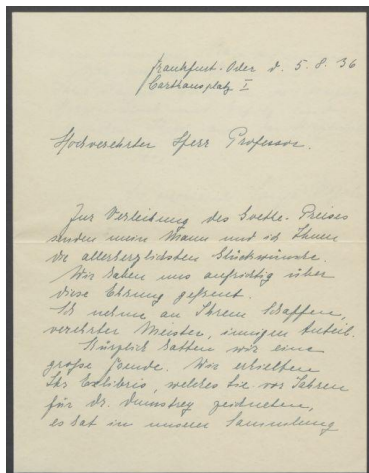 Frankfurt-Oder d. 5. 8. 36
Carthausplatz I
Hochverehrter Herr Professor.
Zur Verleihung des Goethe-Preises
senden mein Mann und ich Ihnen
die allerherzlichsten Glückwünsche.
Wir haben uns aufrichtig über
diese Ehrung gefreut.
Ich nehme an Ihrem Schaffen,
verehrter Meister, innigen Anteil.
Kürzlich hatten wir eine
große Freude. Wir erhielten
Ihr Exlibris, welches Sie vor Jahren
für Dr. zeichneten,
es hat in unserer Sammlung